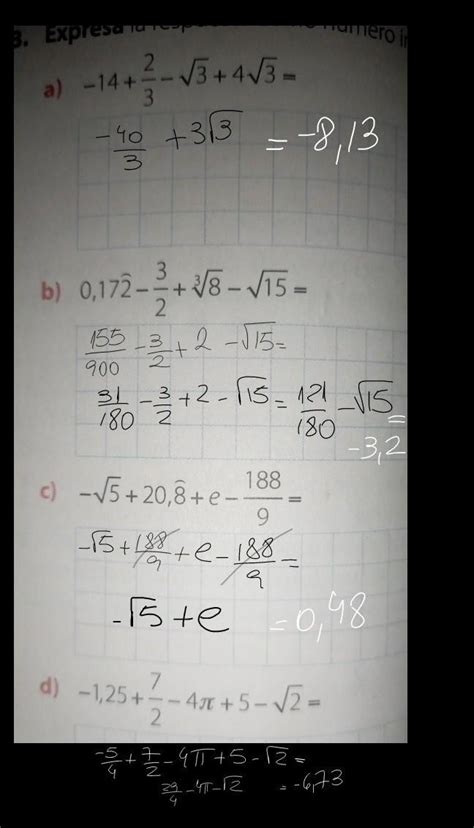 3. Expresa la número
a) -14 + 2/3 - √3 + 4√3 =
-40/3 + 3√3 = -8,13
b) 0,172̂ - 3/2 + ∛8 - √15 =
155/900 - 3/2 + 2 - √15 =
31/180 - 3/2 + 2 - √15 = 121/180 - √15 =
-3,2
c) -√5 + 20,8̂ + e - 188/9 =
-√5 + 188/9 + e - 188/9 =
-√5 + e = 0,48
d) -1,25 + 7/2 - 4π + 5 - √2 =
-5/4 + 7/2 - 4π + 5 - √2 =
29/4 - 4π - √2 = -6,73